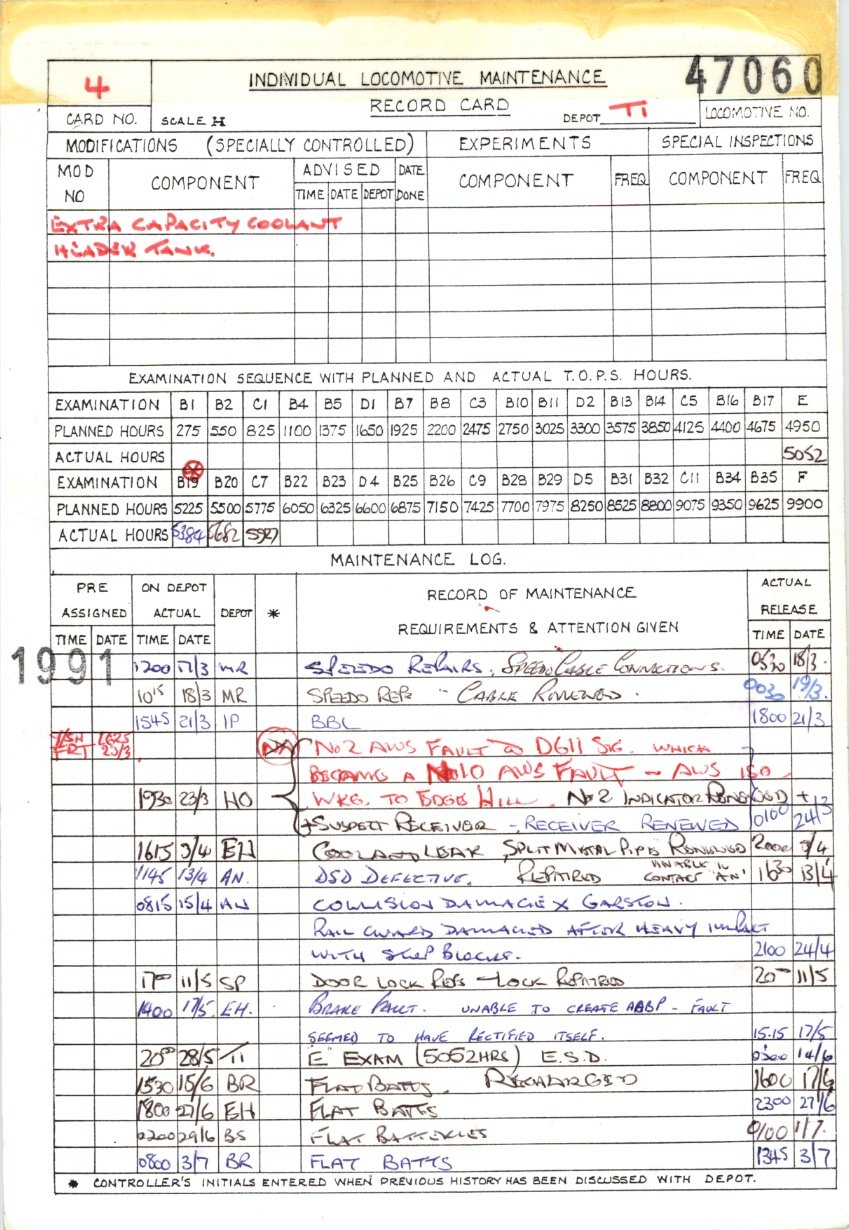 4 INDIVIDUAL LOCOMOTIVE MAINTENANCE 47060
RECORD CARD
CARD NO. SCALE H DEPOT TI LOCOMOTIVE NO.
MODIFICATIONS (SPECIALLY CONTROLLED) EXPERIMENTS SPECIAL INSPECTIONS
MOD NO COMPONENT ADVISED DATE DONE COMPONENT FREQ COMPONENT FREQ
TIME DATE DEPOT
EXTRA CAPACITY COOLANT
HEADER TANK.
EXAMINATION SEQUENCE WITH PLANNED AND ACTUAL T.O.P.S. HOURS.
EXAMINATION B1 B2 C1 B4 B5 D1 B7 B8 C3 B10 B11 D2 B13 B14 C5 B16 B17 E
PLANNED HOURS 275 550 825 1100 1375 1650 1925 2200 2475 2750 3025 3300 3575 3850 4125 4400 4675 4950
ACTUAL HOURS 5052
EXAMINATION B19 B20 C7 B22 B23 D4 B25 B26 C9 B28 B29 D5 B31 B32 C11 B34 B35 F
PLANNED HOURS 5225 5500 5775 6050 6325 6600 6875 7150 7425 7700 7975 8250 8525 8800 9075 9350 9625 9900
ACTUAL HOURS 5384 5682
MAINTENANCE LOG.
PRE ASSIGNED ON DEPOT ACTUAL DEPOT * RECORD OF MAINTENANCE ACTUAL RELEASE
REQUIREMENTS & ATTENTION GIVEN
TIME DATE TIME DATE TIME DATE
1991
1200 17/3 MR SPEEDO REPAIRS. SPEEDO CABLE CONNECTIONS. 0530 18/3.
1015 18/3 MR SPEEDO REPS - CABLE RENEWED. 0030 19/3.
1545 21/3 IP BBL 1800 21/3
FRT 23/3 NO2 AWS FAULT @ DG11 SIG. WHICH
BECAME A NO10 AWS FAULT - AWS ISO
1930 23/3 HO WKG. TO EDGE HILL. NO2 INDICATOR RENEWED +
+ SUSPECT RECEIVER - RECEIVER RENEWED 0100 24/3
1615 3/4 EH COOLANT LEAK, SPLIT METAL PIPE RENEWED 2000 3/4
1145 13/4 AN. DSD DEFECTIVE. REPAIRED UNABLE TO CONTACT 'AN' 1630 13/4
0815 15/4 AN COLLISION DAMAGE X GARSTON.
RAIL GUARD DAMAGED AFTER HEAVY IMPACT
WITH STOP BLOCKS. 2100 24/4
1700 11/5 SP DOOR LOCK REPS - LOCK REPAIRED 2000 11/5
1400 17/5. EH. BRAKE FAULT. UNABLE TO CREATE ABBP - FAULT
SEEMED TO HAVE RECTIFIED ITSELF. 15.15 17/5
2000 28/5 TI "E" EXAM (5052HRS) E.S.D. 0300 14/6
1530 15/6 BR FLAT BATTS. RECHARGED 1600 17/6
1800 27/6 EH FLAT BATTS 2300 27/6
0200 29/6 BS FLAT BATTERIES 0100 1/7.
0800 3/7 BR FLAT BATTS 1345 3/7
* CONTROLLER'S INITIALS ENTERED WHEN PREVIOUS HISTORY HAS BEEN DISCUSSED WITH DEPOT.